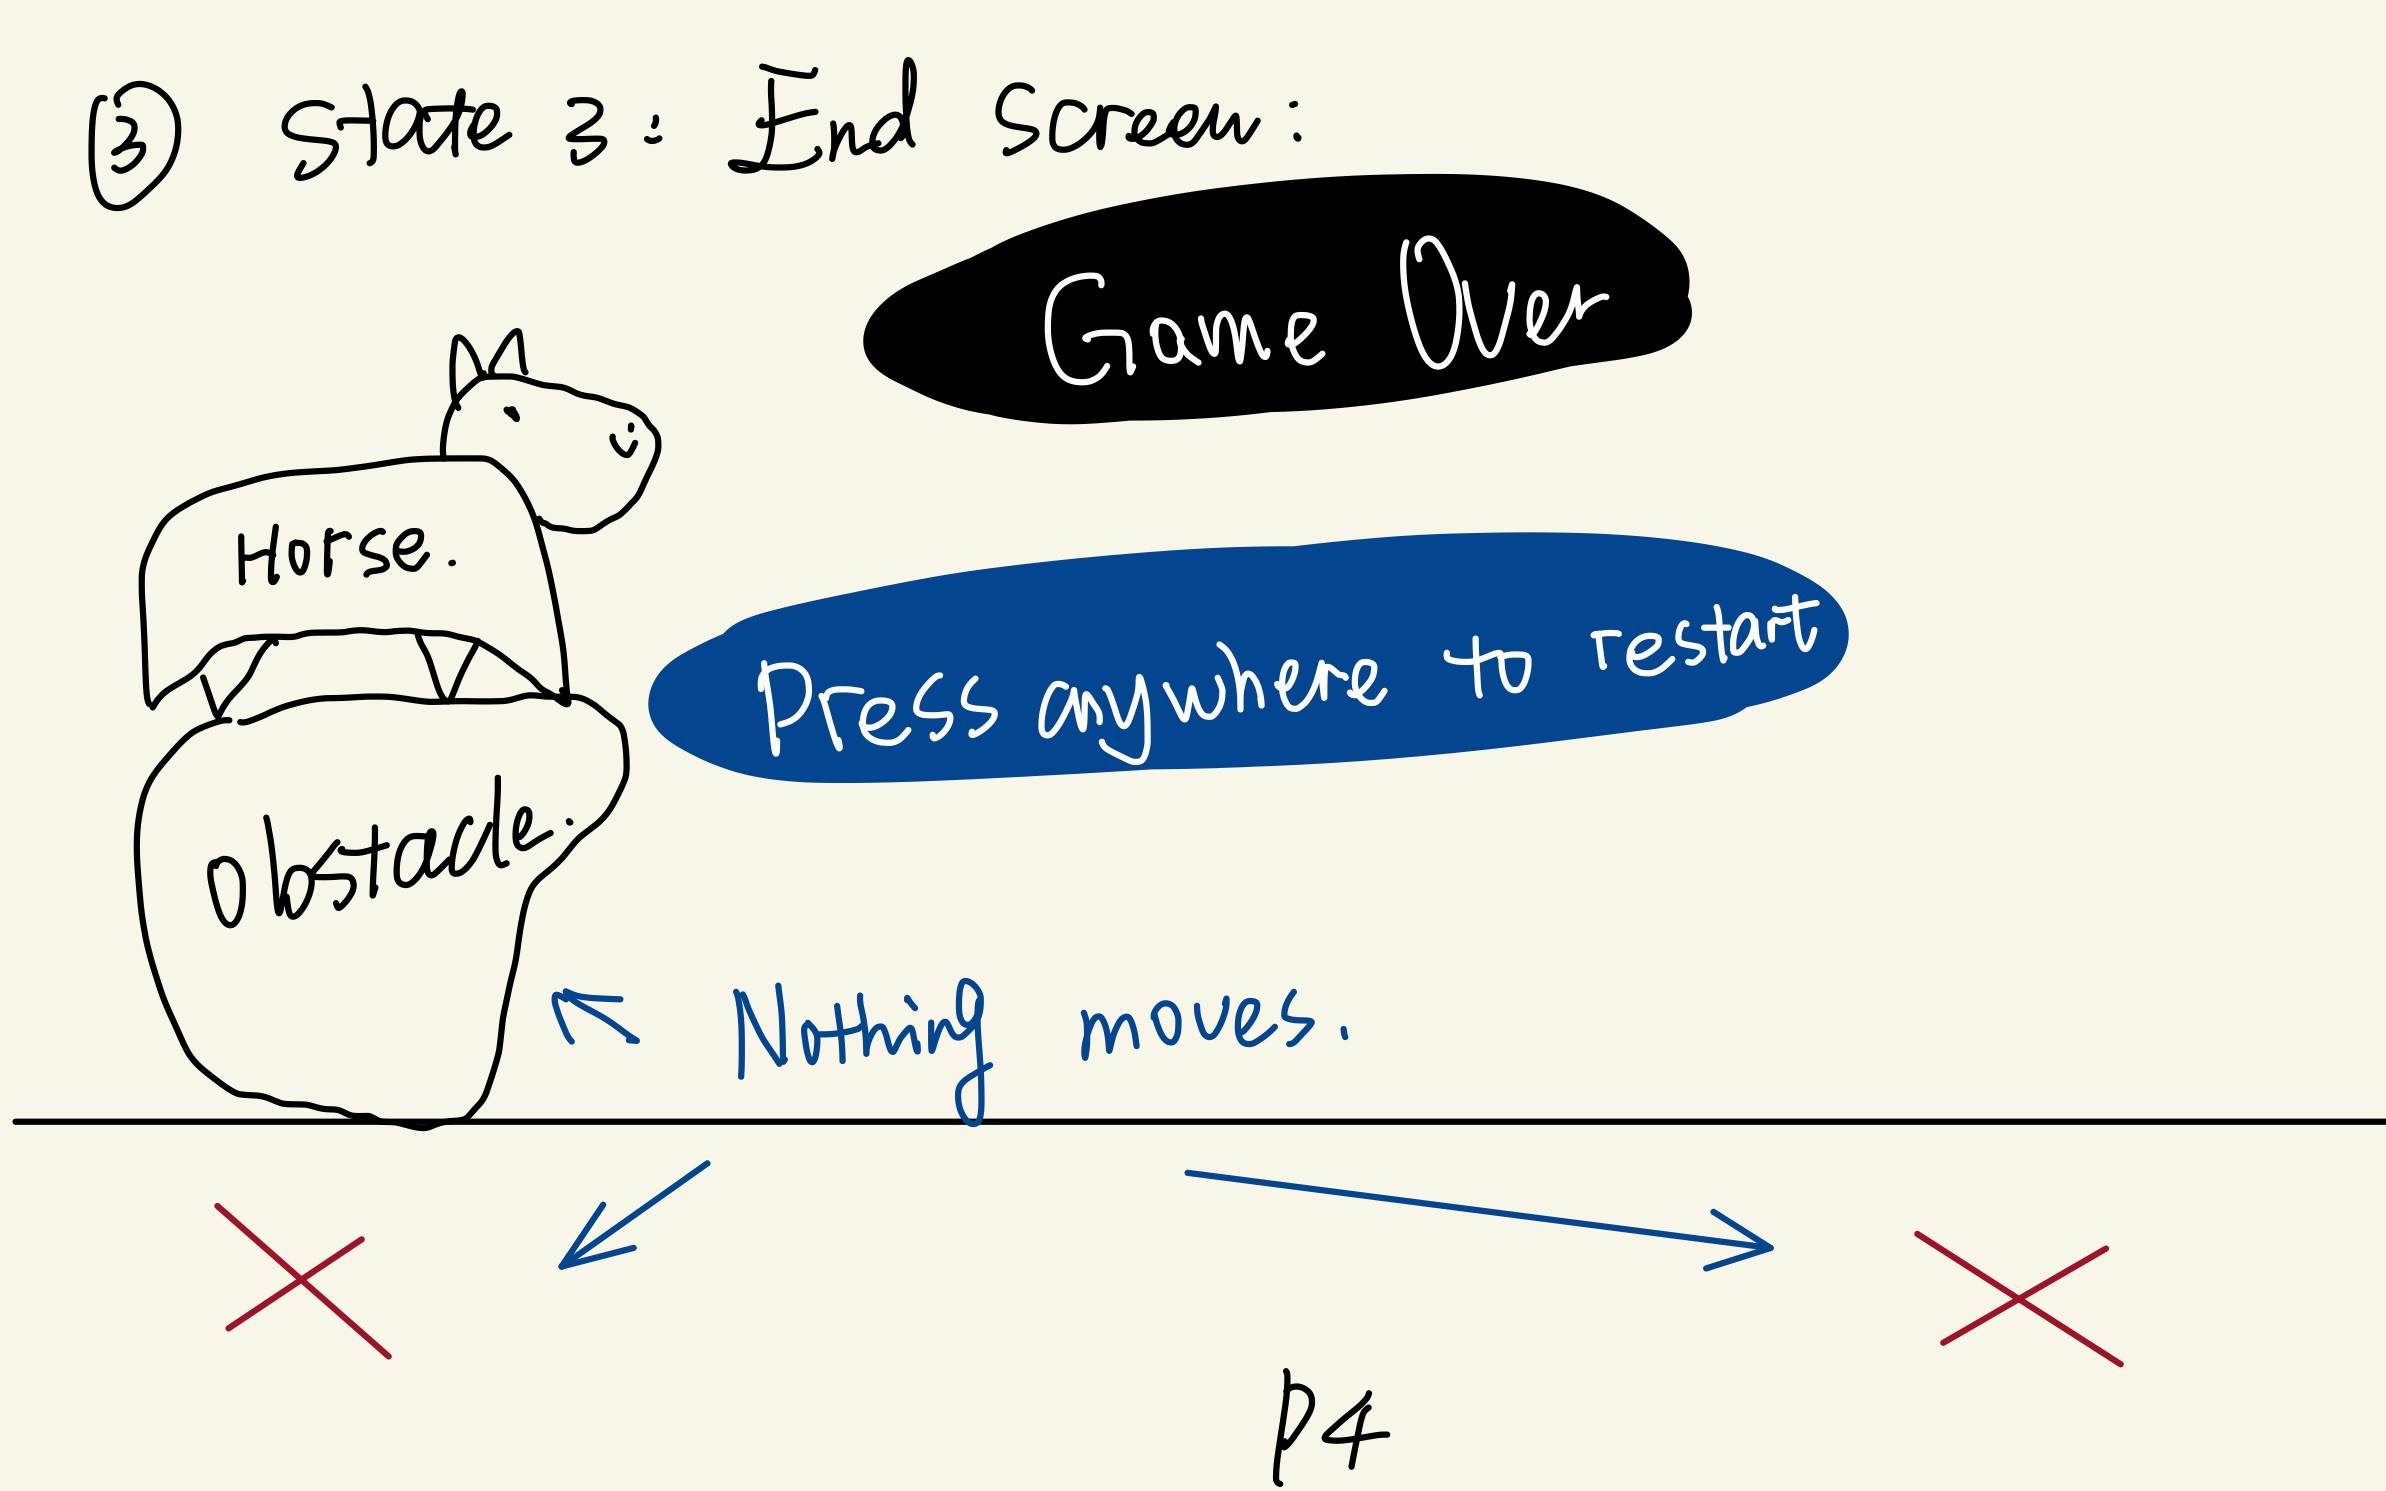 ③ State 3: End Screen:
Game Over
Horse.
Press anywhere to restart
Obstacle.
Nothing moves.
P4